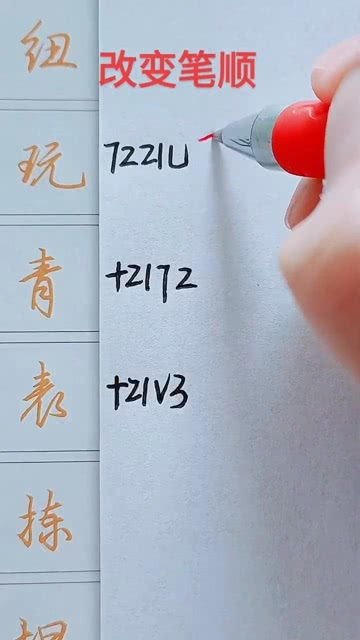 纽
改变笔顺
玩 7221U
青 +2172
表 +21V3
拣